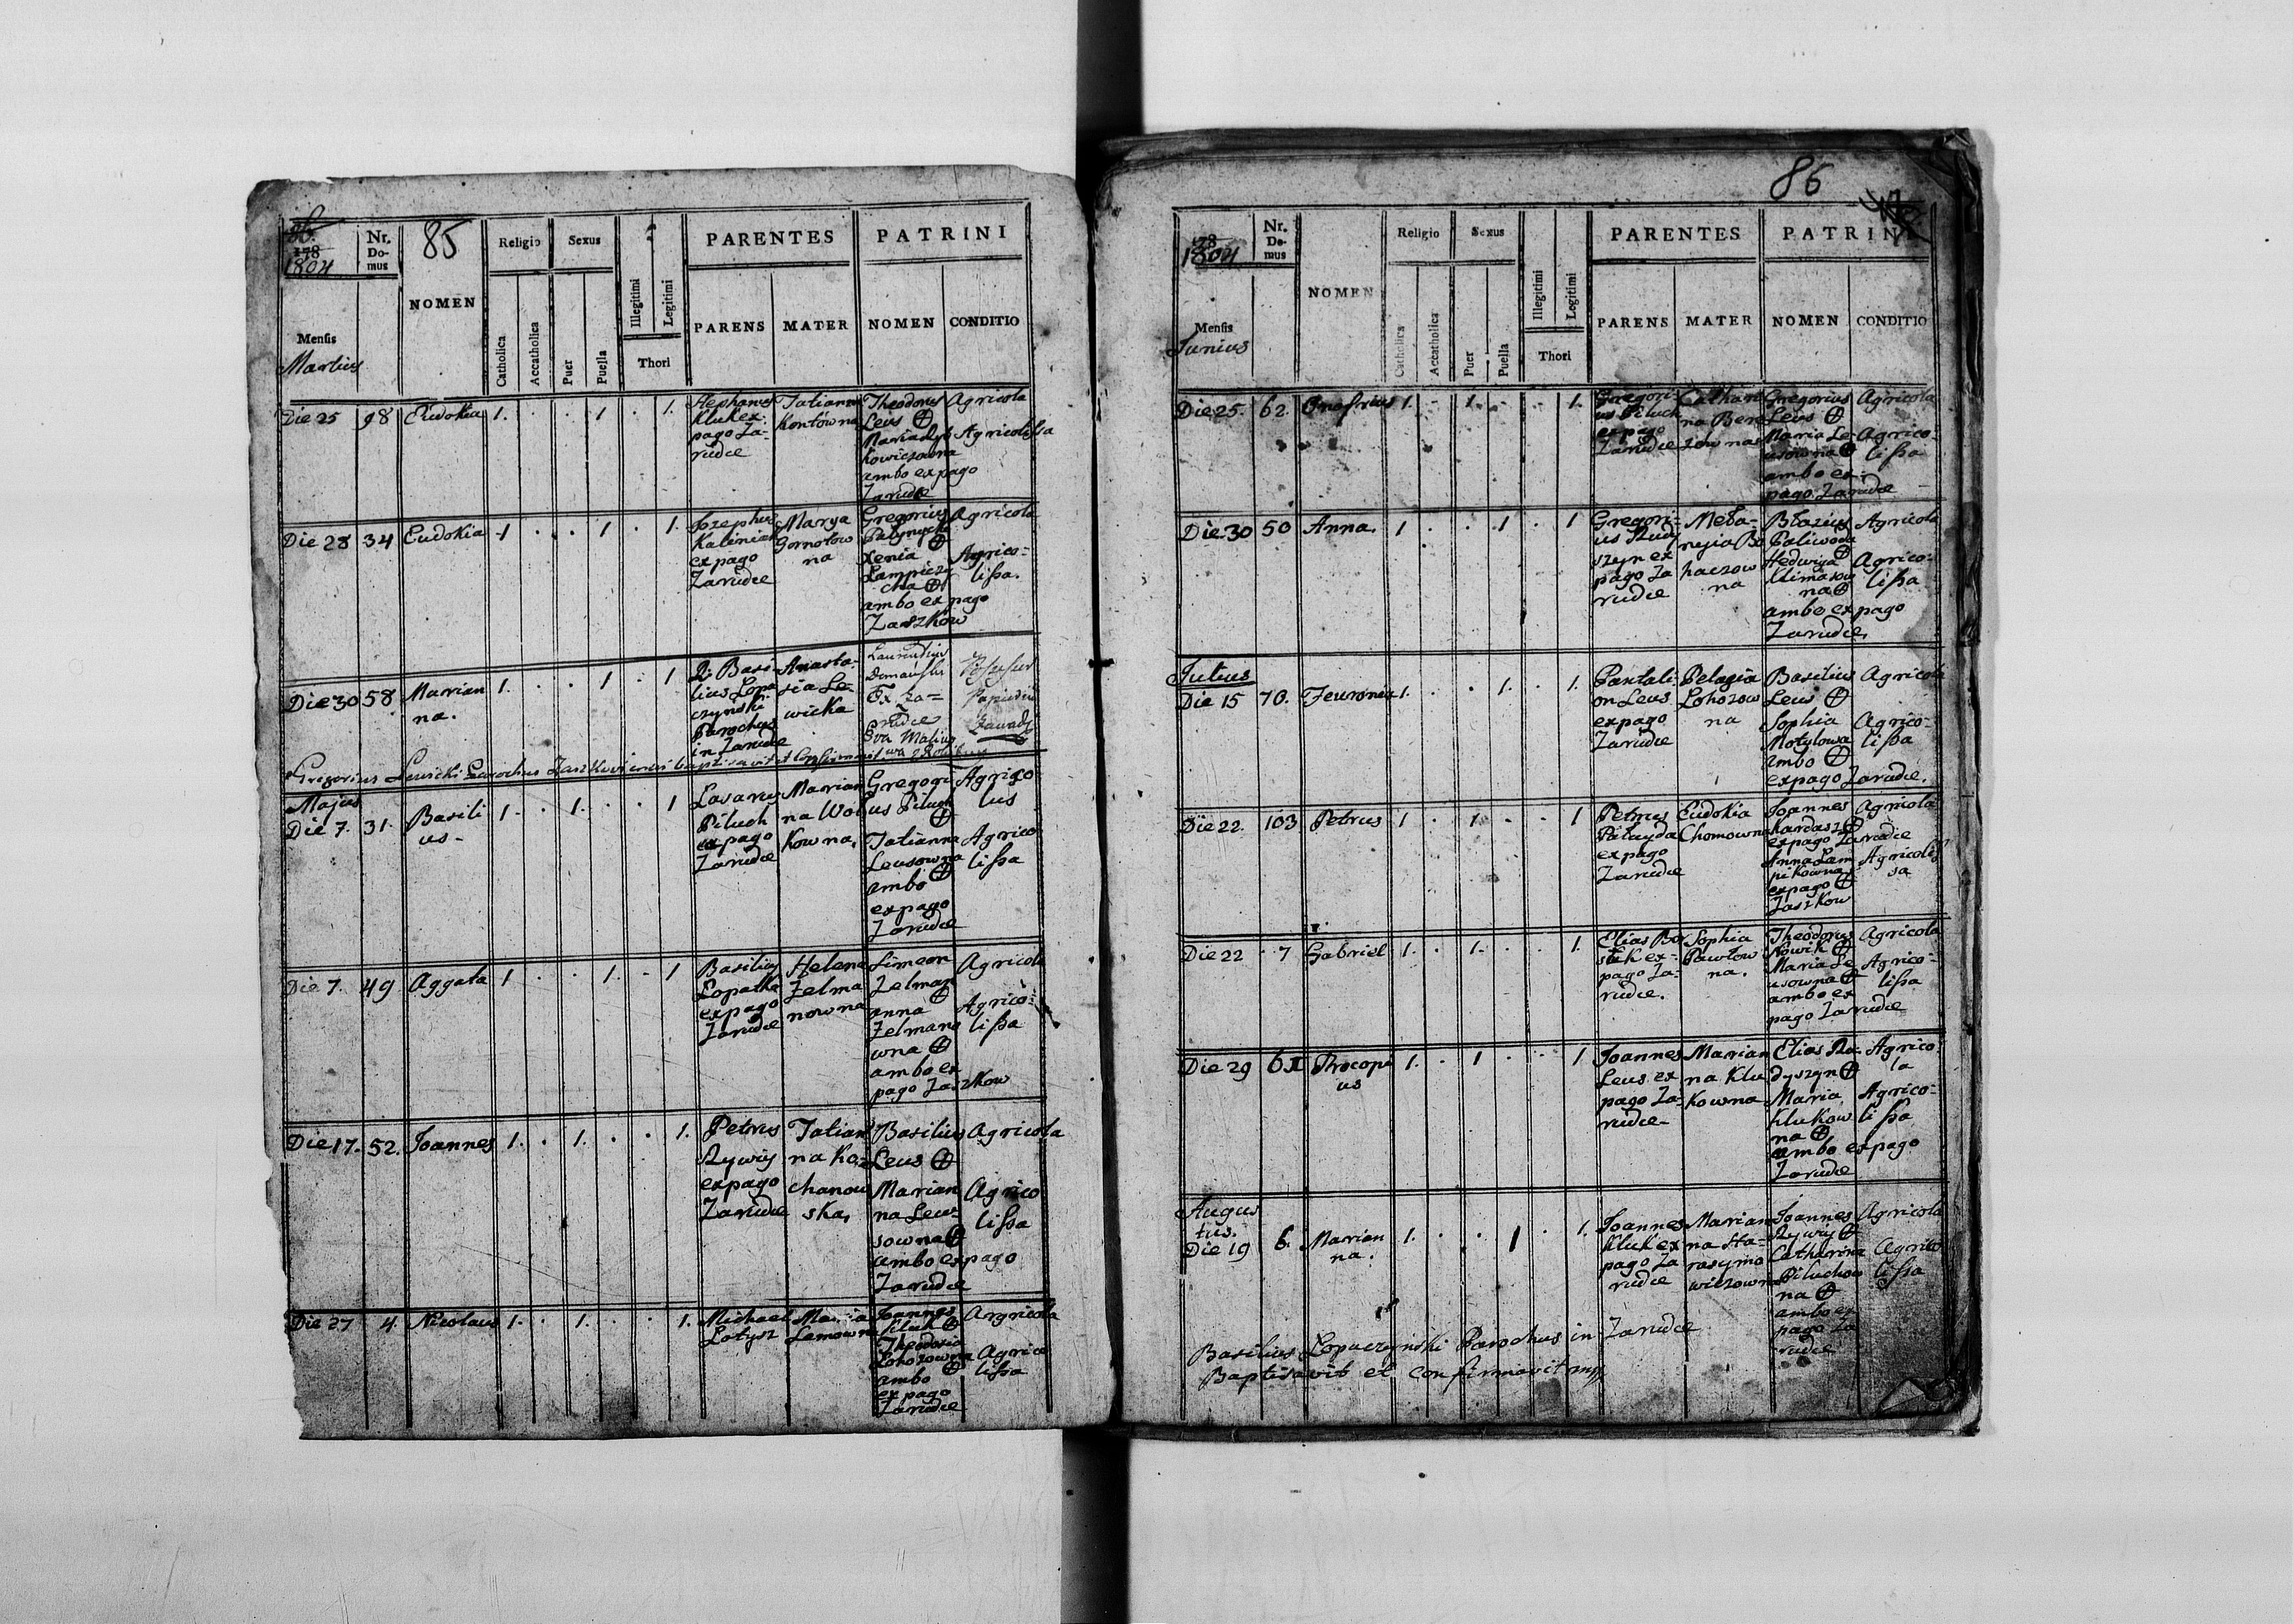 85
1804
Nr.
Do-
mus
Religio
Sexus
PARENTES
PATRINI
NOMEN
Illegitimi
Legitimi
PARENS
MATER
NOMEN
CONDITIO
Mensis
Martius
Catholica
Accatholica
Puer
Puella
Thori
Die 25 98 Eudokia 1. . . 1 . 1.
Stephanus
Kluk ex
pago Za-
rudce
Tatianna
Kontówna
Theodorus
Leus ⊕
Maria
kowiczowna
ambo ex pago
Zarudce
Agricola
Agricolissa
Die 28 34 Eudokia 1 . . 1 . 1.
Kaliniak
ex pago
Zarudce
Marya
Gornolow
na
Gregorius
Xenia ⊕
cha ⊕
ambo ex pago
Zaszkow
Agricola
Agrico=
lissa.
Die 30 58 Marian
na.
1. . . 1 . 1
Basi
lius Lopa
czynski
Parochus
in Zarudce
Anasta-
sia Le-
wicka
Ex Za=
rudce
Gregorius Lewicki Parochus Zaszkoviensis baptisavit et Confirmavit
Majus
Die 7. 31. Basili
us-
1 . 1. . . 1
Lazarus
Piluch
ex pago
Zarudce
Marian
na Wol
kowna,
Gregori
us Piluch
⊕
Tatianna
Leusowna
ambo ⊕
ex pago
Zarudce
Agrico
lus
Agrico
lissa
Die 7. 49 Aggata 1 . . 1. . 1
Basilius
Lopatka
ex pago
Zarudce
Helena
Zelma
nowna
Simeon
Zelman
⊕
Anna
Zelmano
wna ⊕
ambo ex
pago Zaszkow
Agricola
Agrico=
lissa
Die 17. 52. Joannes 1. . 1. . . 1.
Petrus
Rywiy
ex pago
Zarudce
Tatian
na Ko-
chanow
ska,
Basilius
Leus ⊕
Marian
na Leu-
sowna ⊕
ambo ex pago
Zarudce
Agricola
Agrico
lissa
Die 27 4. Nicolaus 1. . 1. . . 1.
Michael
Lotysz
Lemowna
Joannes
Piluch ⊕
Theodosia
Lohozowna
ambo ⊕
ex pago
Zarudce
Agricola
Agrico
lissa
86
1804
Nr.
Do-
mus
Religio
Sexus
PARENTES
PATRINI
NOMEN
Illegitimi
Legitimi
PARENS
MATER
NOMEN
CONDITIO
Mensis
Junius
Catholica
Accatholica
Puer
Puella
Thori
Die 25. 62. Onofrius 1. . 1. . . 1.
Gregori-
us Piluch
ex pago
Zarudce
Cathari
na Bere
zowna
Gregorius
Leus ⊕
Maria Le-
usowna ⊕
ambo ex
pago Zarudce
Agricola
Agrico=
lissa
Die 30 50 Anna. 1 . . 1 . 1
Gregori-
us Rudy
szyn ex
pago Za
rudce
Mela-
nyia Bo
haczow
na
Blazius
Paliwoda
⊕
Hedwiga
Klimasow
na ⊕
ambo ex pago
Zarudce,
Agricola
Agrico=
lissa
Julius
Die 15 70. Feuronia 1. . . 1. . 1.
Pantali
on Leus
ex pago
Zarudce
Pelagia
Lohozow
na
Basilius
Leus ⊕
Sophia
Motylowa
ambo ⊕
ex pago Zarudce.
Agricola
Agrico=
lissa
Die 22. 103 Petrus 1 . 1. . . 1
Petrus
Palayda
ex pago
Zarudce
Eudokia
Chomowna
Joannes
Kardasz ⊕
ex pago Zarudce
Anna Lam
pikowna
ex pago ⊕
Zaszkow
Agricola
Agricolis
sa
Die 22 7 Gabriel 1. . 1. . . 1.
Elias Bo
ex-
pago Za-
rudce.
Sophia
Pawlow
na.
Theodorus
Nowik ⊕
Maria Le
usowna ⊕
ambo ex
pago Zarudce
Agricola
Agrico=
lissa
Die 29 61 Procopi
us
1. . 1 . . 1.
Joannes
Leus ex
pago Za-
rudce-
Marian
na Klu
kowna
Elias Ru-
dyszyn ⊕
Maria
Klukow
na ⊕
ambo ex pago
Zarudce
Agrico
la
Agrico=
lissa
Augus
tus.
Die 19 6. Marian
na.
1. . . 1 . 1.
Joannes
Kluk ex
pago Za
rudce
Marian
na Ha-
rasymo
wiczowna
Joannes
Rywiy ⊕
Catharina
Piluchow
na ⊕
ambo ex
pago Za
rudce
Agricola
Agrico
lissa
Basilius Lopaczynski Parochus in Zarudce
Baptisavit et confirmavit mp